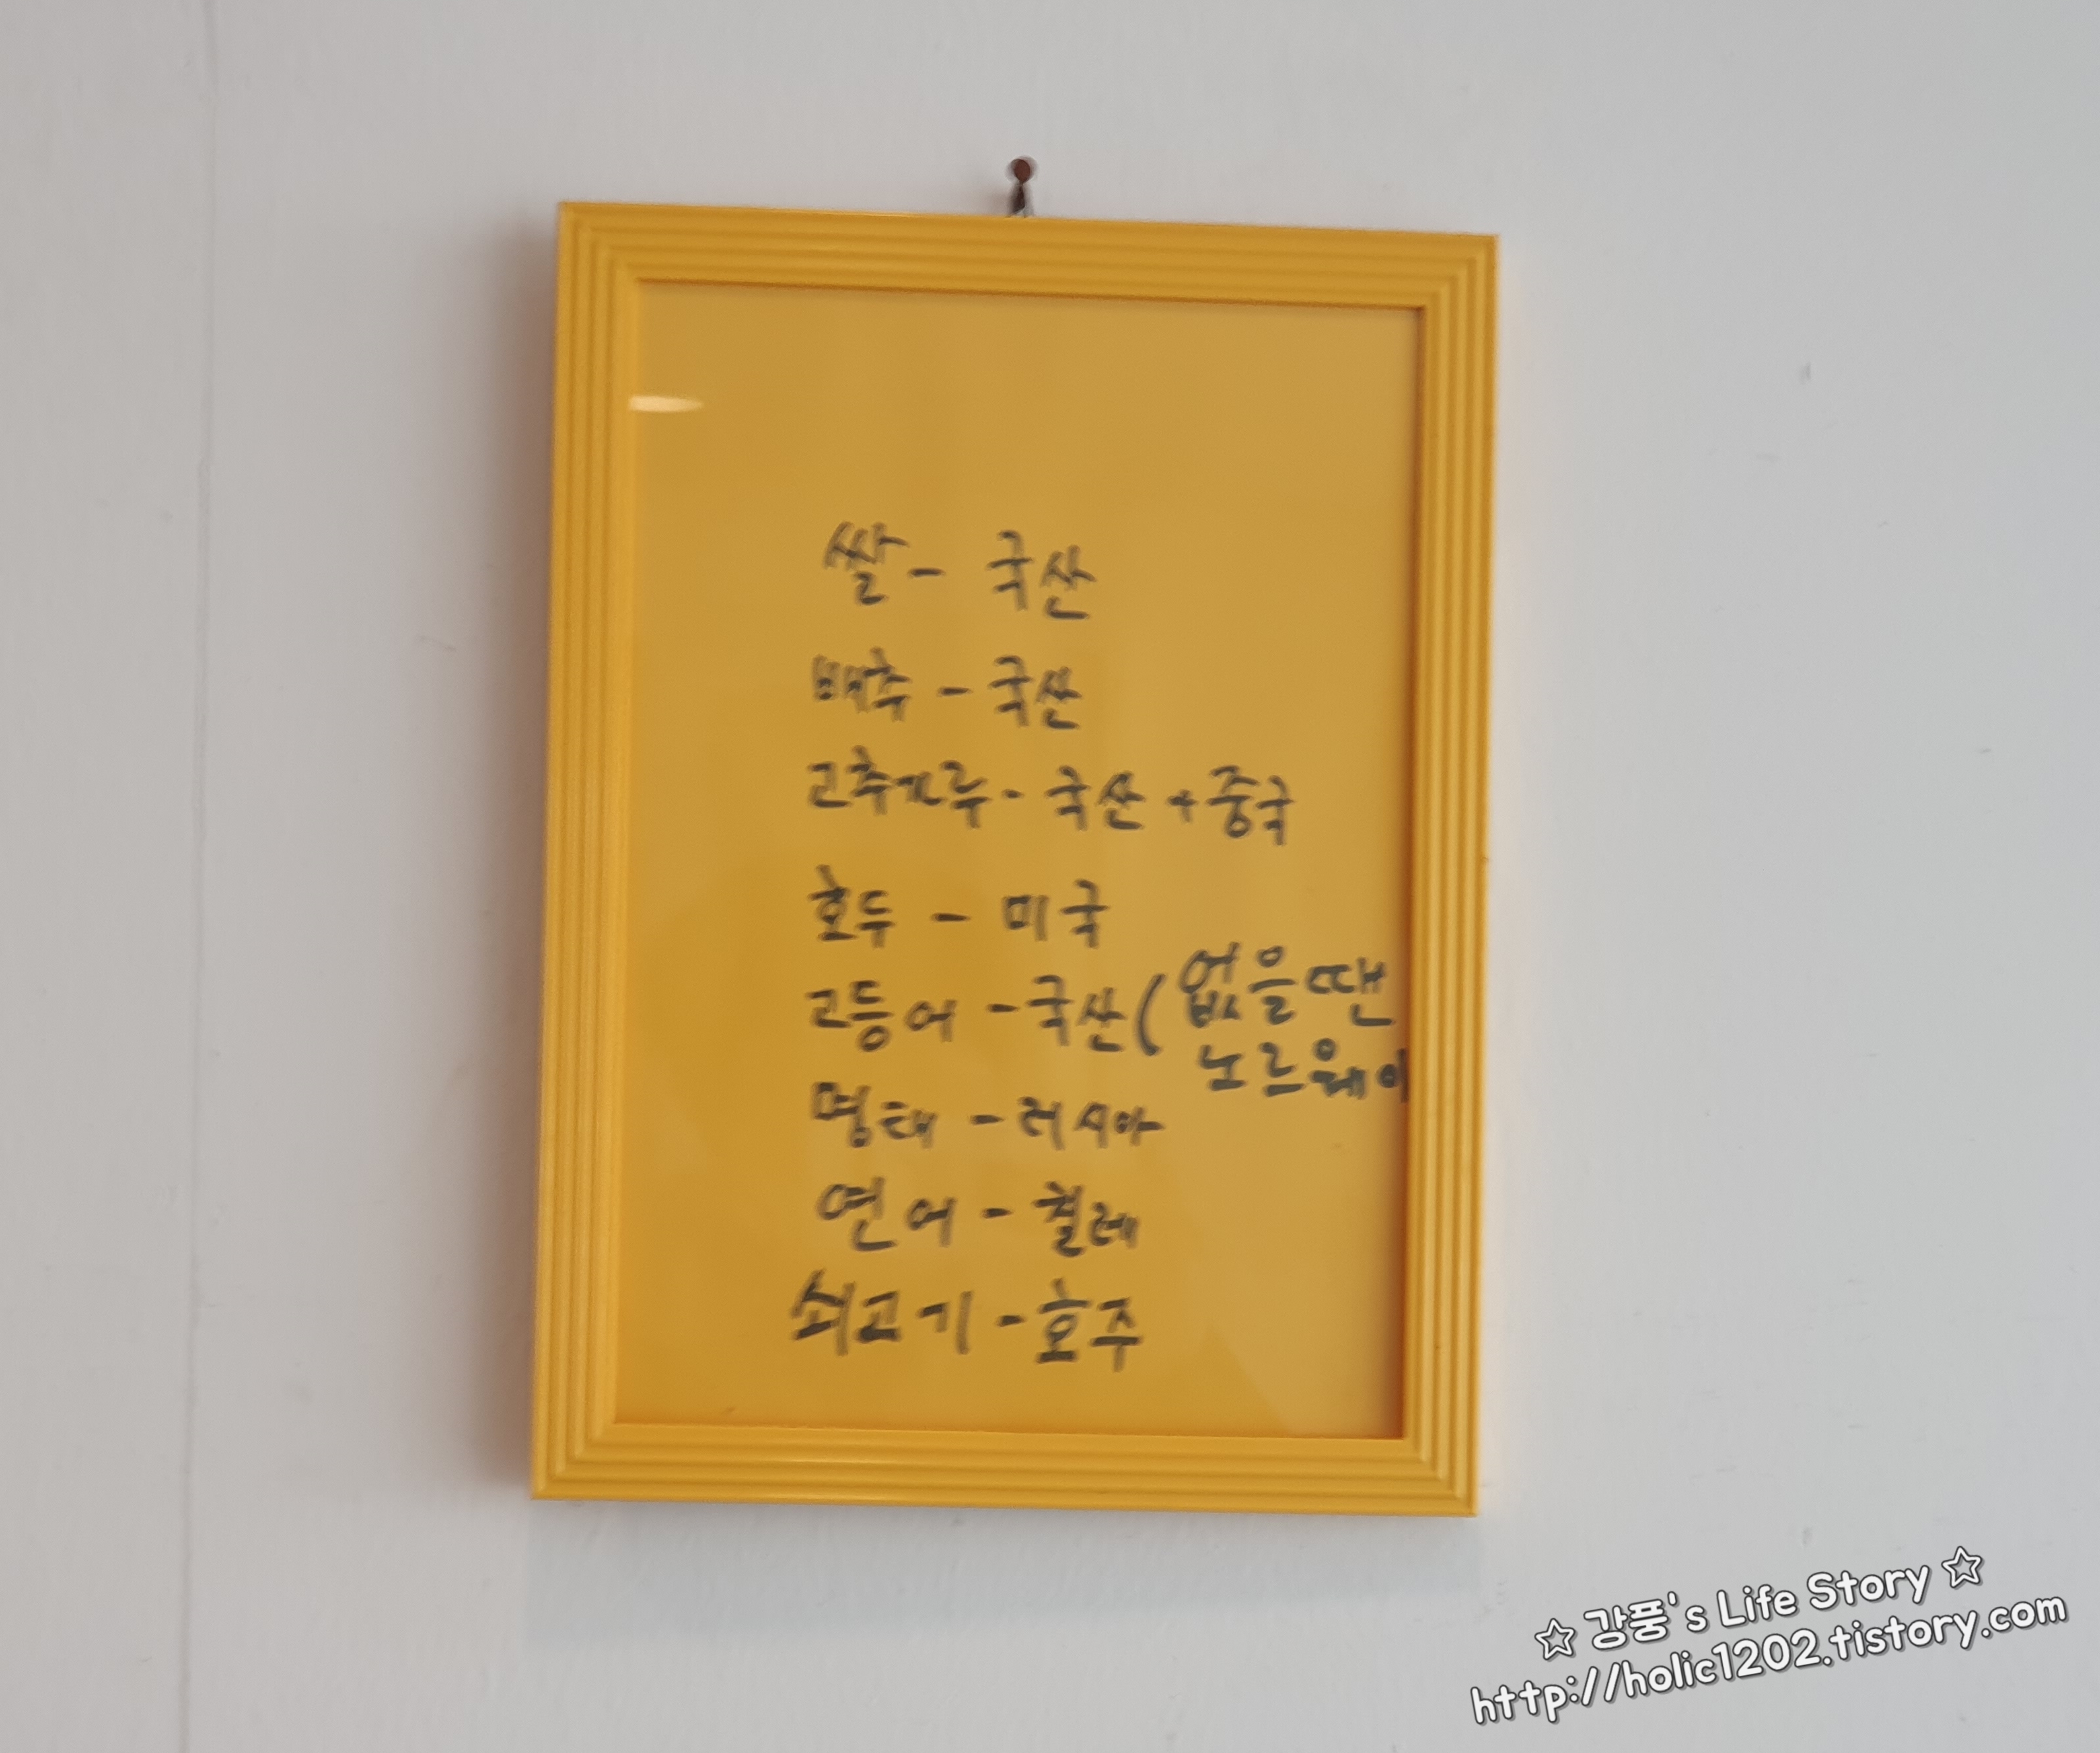 쌀 - 국산
배추 - 국산
고추가루 - 국산 + 중국
호두 - 미국
고등어 - 국산 ( 없을땐
노르웨이
명태 - 러시아
연어 - 칠레
쇠고기 - 호주
☆ 강풍's Life Story ☆
http://holic1202.tistory.com